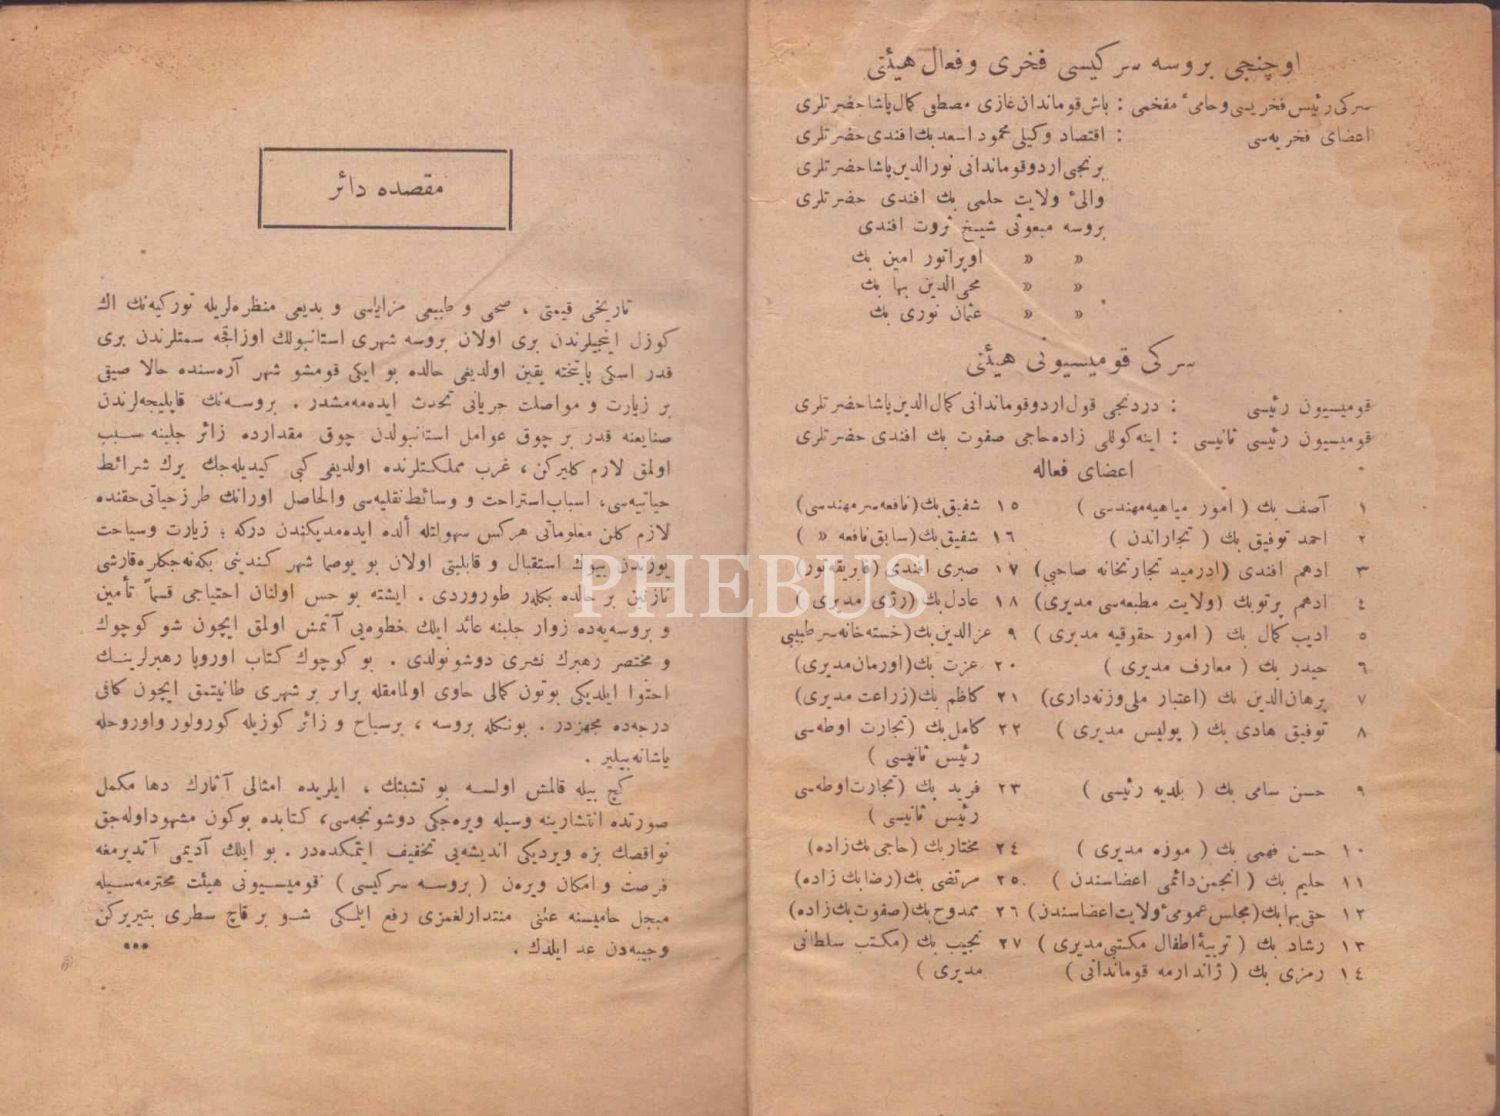 اوچنجی بروسه سرکیسی فخری و فعال هیئتی
سرکی رئیس فخریسی و حامیٔ مفخمی : باش قوماندان غازی مصطفی کمال پاشا حضرتلری
اعضای فخریه سی : اقتصاد وکیلی محمود اسعد بك افندی حضرتلری
برنجی اردو قوماندانی نورالدین پاشا حضرتلری
والیٔ ولایت حلمی بك افندی حضرتلری
بروسه مبعوثی شیخ ثروت افندی
» » اوپراتور امین بك
» » محی الدین بها بك
» » عثمان نوری بك
سرکی قومیسیونی هیئتی
قومیسیون رئیسی : دردنجی قول اردو قوماندانی کمال الدین پاشا حضرتلری
قومیسیون رئیس ثانیسی : اینه کوللی زاده حاجی صفوت بك افندی حضرتلری
اعضای فعاله
١ آصف بك ( امور میاهیه مهندسی )
٢ احمد توفیق بك ( تجاراندن )
٣ ادهم افندی (ادرمید تجارتخانه صاحبی)
٤ ادهم پرتو بك (ولایت مطبعه سی مدیری)
٥ ادیب کمال بك ( امور حقوقیه مدیری )
٦ حیدر بك ( معارف مدیری )
٧ برهان الدین بك (اعتبار ملی وزنه داری)
٨ توفیق هادی بك ( پولیس مدیری )
٩ حسن سامی بك ( بلدیه رئیسی )
١٠ حسن فهمی بك ( موزه مدیری )
١١ حلیم بك ( انجمن دائمی اعضاسندن )
١٢ حقی بها بك (مجلس عمومیٔ ولایت اعضاسندن)
١٣ رشاد بك ( تربیۀ اطفال مکتبی مدیری )
١٤ رمزی بك ( ژاندارمه قوماندانی )
١٥ شفیق بك (نافعه سر مهندسی)
١٦ شفیق بك (سابق نافعه » )
١٧ صبری افندی (فابریقه تور)
١٨ عادل بك (رژی مدیری)
٩ عزالدین بك (خسته خانه سر طبیبی
٢٠ عزت بك (اورمان مدیری)
٢١ کاظم بك (زراعت مدیری)
٢٢ کامل بك (تجارت اوطه سی
رئیس ثانیسی )
٢٣ فرید بك (تجارت اوطه سی
رئیس ثانیسی )
٢٤ مختار بك (حاجی بك زاده)
٢٥ مرتضی بك (رضا بك زاده)
٢٦ ممدوح بك (صفوت بك زاده)
٢٧ نجیب بك (مکتب سلطانی
مدیری )
مقصده دائر
تاریخی قیمتی ، صحی و طبیعی مزایاسی و بدیعی منظره لریله تورکیه نك اك
کوزل اینجیلرندن بری اولان بروسه شهری استانبولك اوزاقجه سمتلرندن بری
قدر اسکی پایتخته یقین اولدیغی حالده بو ایکی قومشو شهر آره سنده حالا صیقی
بر زیارت و مواصلت جریانی تحدث ایده مه مشدر . بروسه نك قاپلیجه لرندن
صنایعنه قدر بر چوق عوامل استانبولدن چوق مقدارده زائر جلبنه سبب
اولمق لازم کلیرکن ، غرب مملکتلرنده اولدیغی کبی کیدیله جك یرك شرائط
حیاتیه سی ، اسباب استراحت و وسائط نقلیه سی والحاصل اورانك طرز حیاتی حقنده
لازم کلن معلوماتی هرکس سهولتله ألده ایده مدیکندن درکه ؛ زیارت و سیاحت
یوزندن بیوك استقبال و قابلیتی اولان بو یوصما شهر کندینی بکه نه جکلره قارشی
نازنین بر حالده بکلر طوروردی . ایشته بو حس اولنان احتیاجی قسماً تأمین
و بروسه یه ده زوار جلبنه عائد ایلك خطوه یی آتمش اولمق ایچون شو کوچوك
و مختصر رهبرك نشری دوشونولدی . بو کوچوك کتاب اوروپا رهبرلرینك
احتوا ایلدیکی بوتون کمالی حاوی اولمامقله برابر بر شهری طانیتمق ایچون کافی
درجه ده مجهزدر . بونکله بروسه ، بر سیاح و زائر کوزیله کورولور و اوروحله
یاشانه بیلیر .
کچ بیله قالمش اولسه بو تشبثك ، ایلریده امثالی آثارك دها مکمل
صورتده انتشارینه وسیله ویره جکی دوشونجه سی ، کتابده بوکون مشهود اوله جق
نواقصك بزه ویردیکی اندیشه یی تخفیف ایتمکده در . بو ایلك آدیمی آتدیرمغه
فرصت و امکان ویرن ( بروسه سرکیسی ) قومیسیونی هیئت محترمه سیله
مبجل حامیسنه علنی منتدارلغمزی رفع ایلمکی شو بر قاچ سطری بیتیررکن
وجیبه دن عد ایلدك .
***
PHEBUS